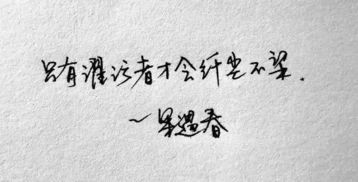 只有濯污者才会纤尘不染.
~吴遇春